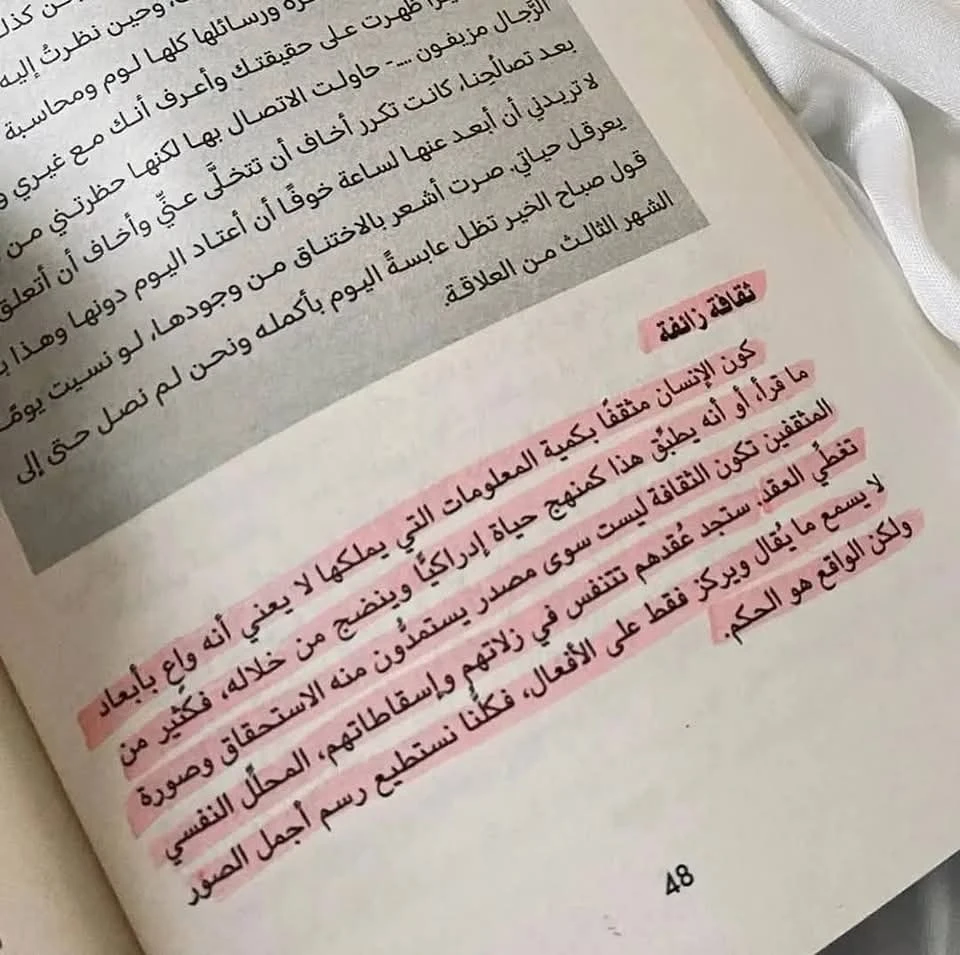 ن كذلك
، وحين نظرتُ إليه
ورسائلها كلها لوم ومحاسبة
ظهرت على حقيقتك وأعرف أنك مع غيري و
الرَّجال مزيفون ... - حاولت الاتصال بها لكنها حظرتني من
بعد تصالُحِنا، كانت تكرر أخاف أن تتخلَّى عنيِّ وأخاف أن أتعلق
لا تريدني أن أبعد عنها لساعة خوفًا أن أعتاد اليوم دونها وهذا
يعرقل حياتي. صرت أشعر بالاختناق من وجودها، لو نسيت يومًا
قول صباح الخير تظل عابسةً اليوم بأكمله ونحن لم نصل حتى إلى
الشهر الثالث من العلاقة.
ثقافة زائفة
كون الإنسان مثقفًا بكمية المعلومات التي يملكها لا يعني أنه واعٍ بأبعاد
ما قرأ، أو أنه يطبِّق هذا كمنهج حياة إدراكيًّا وينضج من خلاله، فكَثير من
المثقفين تكون الثقافة ليست سوى مصدر يستمدُّون منه الاستحقاق وصورة
تغطِّي العقد. ستجد عُقدهم تتنفس في زلاتهم وإسقاطاتهم، المحلِّل النفسي
لا يسمع ما يُقال ويركز فقط على الأفعال، فكلُّنا نستطيع رسم أجمل الصوَر
ولكن الواقع هو الحكم.
48